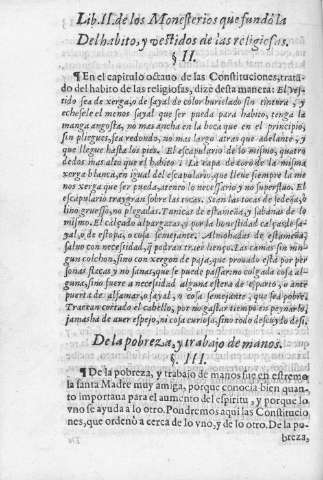 Lib. II. de los Monesterios que fundò la
Del habito, y vestidos de las religiosas.
§ II.
¶ En el capitulo octauo de las Constituciones, trata
do del habito de las religiosas, dize desta manera: El ves
tido sea de xerga, o de sayal de color burielado sin tintura, y
echesele el menos sayal que ser pueda para habito, tenga la
manga angosta, no mas ancha en la boca que en el principio,
sin pliegues, sea redondo, no mas largo atras que adelante, y
que llegue hasta los pies. El escapulario de lo mismo, quatro
dedos mas alto que el habito: La capa de coro de la misma
xerga blanca, en igual del escapulario, que lleue siempre la me
nos xerga que ser pueda, atento lo necessario y no superfluo. El
escapulario traygran sobre las tocas. Sean las tocas de sedeña, o
lino gruesso, no plegadas. Tunicas de estameña, y sabanas de lo
mismo. El calçado alpargatas, y por la honestidad calças de sa-
yal, o de estopa, o cosa semejante. Almohadas de estameña,
saluo con necessidad, q̃ podran traer lienço. Las camas sin nin-
gun colchon, sino con xergon de paja, que prouado està por per
sonas flacas y no sanas, que se puede passar: no colgada cosa al-
guna, sino fuere a necessidad alguna estera de esparto, o ante
puerta de alfamar, o sayal, o cosa semejante, que sea pobre.
Traeran cortado el cabello, por no gastar tiempo en peynarlo,
jamas ha de auer espejo, ni cosa curiosa, sino todo descuydo de si.
De la pobreza, y trabajo de manos.
§. III.
¶ De la pobreza, y trabajo de manos fue en estremo
la santa Madre muy amiga, porque conocia bien quan-
to importaua para el aumento del espiritu, y porque lo
vno se ayuda a lo otro. Pondremos aqui las Constitucio
nes, que ordenò a cerca de lo vno, y de lo otro. De la po-
breza,